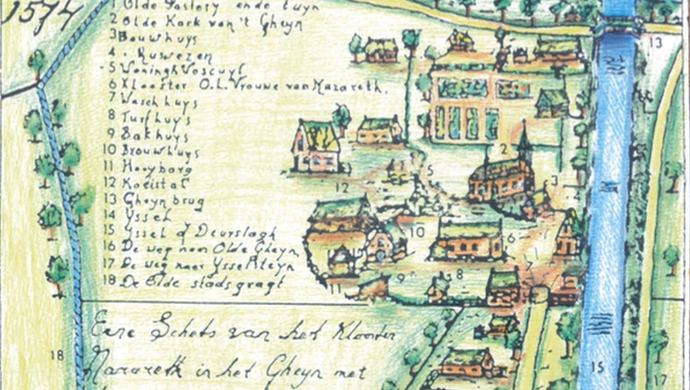 1574
1 Olde Pastery ende tuyn
2 Olde Kerk van 't Gheyn
3 Bouwhuys
4 Ruwezen
5 Woningh
6 Klooster O.L. Vrouwe van Nazareth.
7 Waschhuys
8 Turfhuys
9 Bakhuys
10 Brouwhuys
11 Hooyberg
12 Koeistal
13 Gheynbrug
14 Yssel
15 Yssel d Deurslagh
16 De weg naar Olde Gheyn
17 De weg naer Ysselsteyn
18 De Olde stadsgragt
Eene Schets van het Klooster
Nazareth in het Gheyn met
13
2
3
5
12
10
6
9
8
7
11
18
15
17